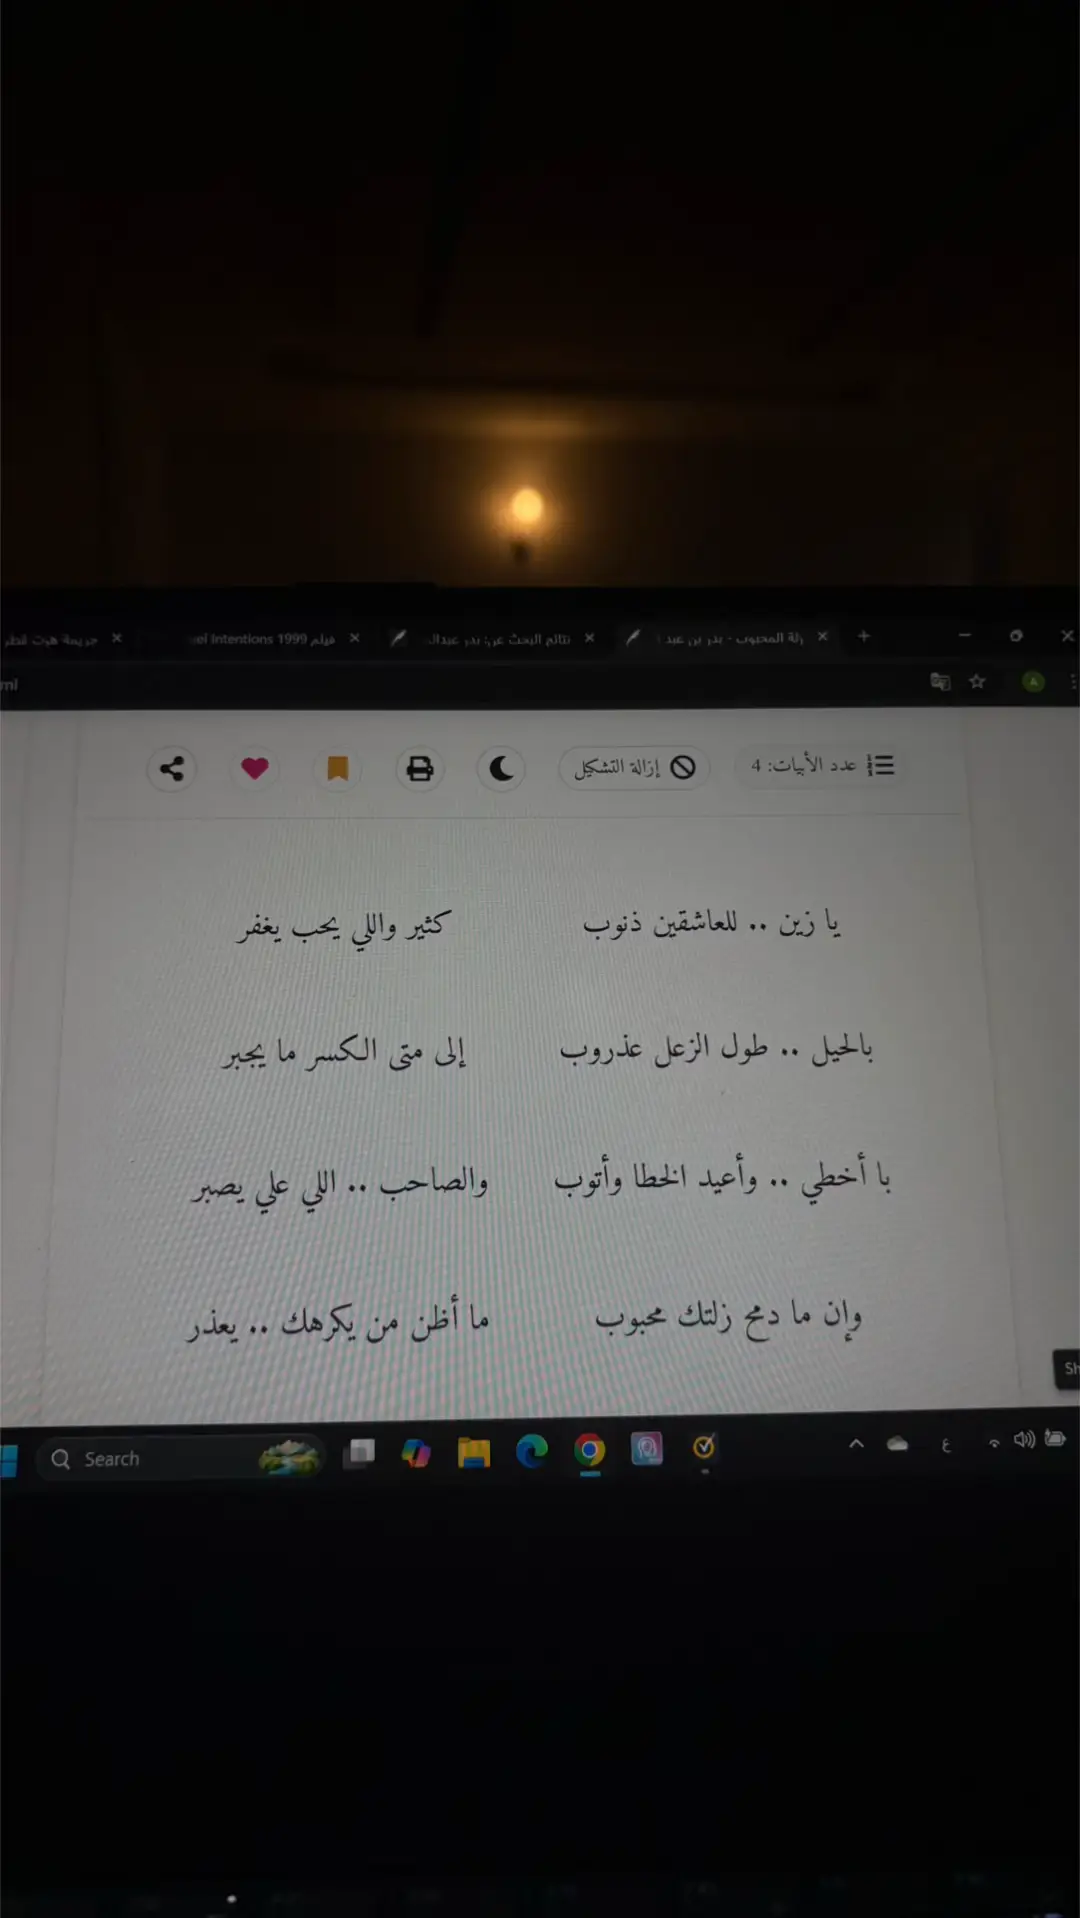 جريمة هوت قطر
el Intentions 1999 فيلم
نتائج البحث عن: بدر عبدال
زلة المحبوب - بدر بن عبد
ml
A
عدد الأبيات: 4
إزالة التشكيل
يا زين .. للعاشقين ذنوب كثير واللي يحب يغفر
بالحيل .. طول الزعل عذروب إلى متى الكسر ما يجبر
با أخطي .. وأعيد الخطا وأتوب والصاحب .. اللي علي يصبر
وإن ما دمح زلتك محبوب ما أظن من يكرهك .. يعذر
Sh
Search
ع